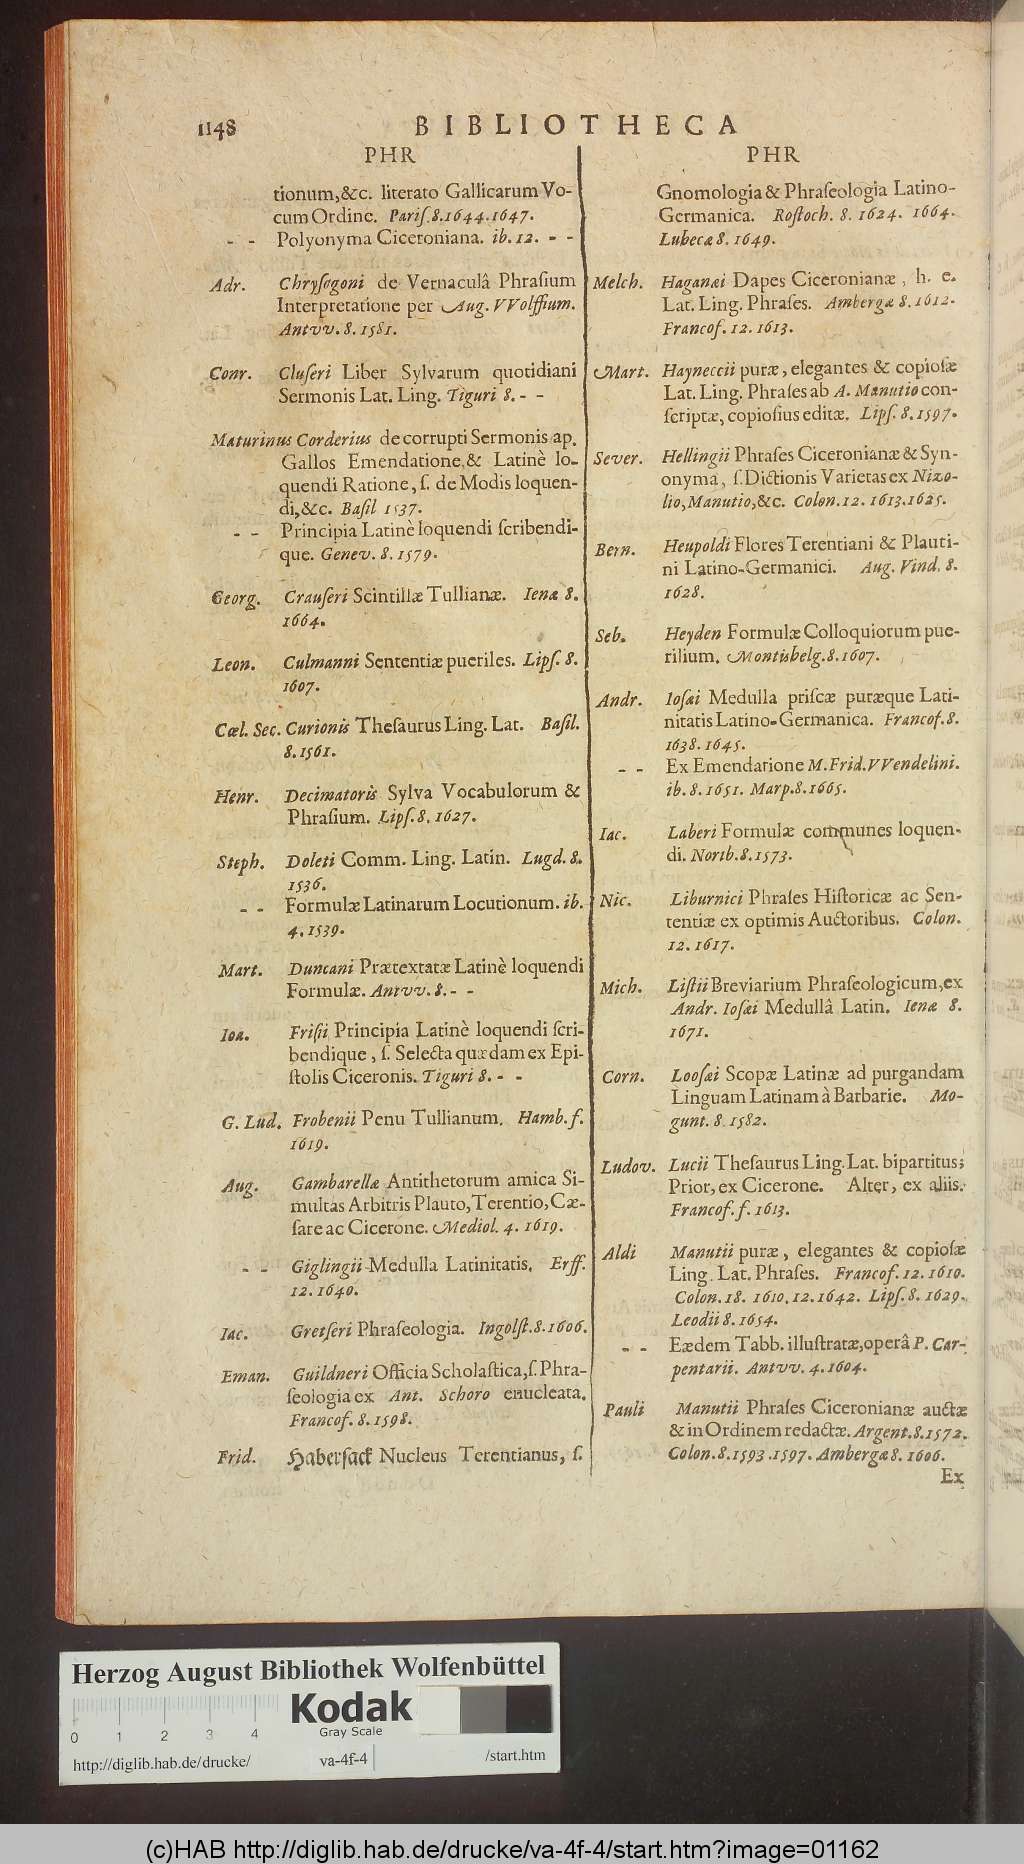 1148 BIBLIOTHECA
PHR
tionum,&c. literato Gallicarum Vo-
cum Ordine. Pariſ.8.1644.1647.
- - Polyonyma Ciceroniana. ib.12. - -
Adr. Chryſogoni de Vernaculâ Phraſium
Interpretatione per Aug. VVolffium.
Antvv. 8. 1581.
Conr. Cluſeri Liber Sylvarum quotidiani
Sermonis Lat. Ling. Tiguri 8. - -
Maturinus Corderius de corrupti Sermonis ap.
Gallos Emendatione & Latinè lo-
quendi Ratione, ſ. de Modis loquen-
di, &c. Baſil 1537.
- - Principia Latinè loquendi ſcribendi-
que. Genev. 8. 1579.
Georg. Crauſeri Scintillæ Tullianæ. Ienæ 8.
1664.
Leon. Culmanni Sententiæ pueriles. Lipſ. 8.
1607.
Cæl. Sec. Curionis Theſaurus Ling. Lat. Baſil.
8.1561.
Henr. Decimatoris Sylva Vocabulorum &
Phraſium. Lipſ. 8. 1627.
Steph. Doleti Comm. Ling. Latin. Lugd. 8.
1536.
- - Formulæ Latinarum Locutionum. ib.
4. 1539.
Mart. Duncani Prætextatæ Latinè loquendi
Formulæ. Antvv. 8. - -
Ioa. Friſii Principia Latinè loquendi ſcri-
bendique, ſ. Selecta quædam ex Epi-
ſtolis Ciceronis. Tiguri 8. - -
G. Lud. Frobenii Penu Tullianum. Hamb. f.
1619.
Aug. Gambarellæ Antithetorum amica Si-
multas Arbitris Plauto, Terentio, Cæ-
ſare ac Cicerone. Mediol. 4. 1619.
- - Giglingii Medulla Latinitatis. Erff.
12. 1640.
Iac. Gretſeri Phraſeologia. Ingolſt. 8. 1606.
Eman. Guildneri Officia Scholaſtica, ſ. Phra-
ſeologia ex Ant. Schoro enucleata.
Francof. 8. 1598.
Frid. Haberſack Nucleus Terentianus, ſ.
PHR
Gnomologia & Phraſeologia Latino-
Germanica. Roſtoch. 8. 1624. 1664.
Lubecæ 8. 1649.
Melch. Haganæi Dapes Ciceronianæ, h. e.
Lat. Ling. Phraſes. Ambergæ 8. 1612.
Francof. 12. 1613.
Mart. Hayneccii puræ, elegantes & copioſæ
Lat. Ling. Phraſes ab A. Manutio con-
ſcriptæ, copioſius editæ. Lipſ. 8. 1597.
Sever. Hellingii Phraſes Ciceronianæ & Syn-
onyma, ſ. Dictionis Varietas ex Nizo-
lio, Manutio, &c. Colon. 12. 1613. 1625.
Bern. Heupoldi Flores Terentiani & Plauti-
ni Latino-Germanici. Aug. Vind. 8.
1628.
Seb. Heyden Formulæ Colloquiorum pue-
rilium. Montisbelg. 8. 1607.
Andr. Ioſæi Medulla priſcæ puræque Lati-
nitatis Latino-Germanica. Francof. 8.
1638. 1645.
- - Ex Emendatione M. Frid. VVendelini.
ib. 8. 1651. Marp. 8. 1665.
Iac. Laberi Formulæ communes loquen-
di. Norib. 8. 1573.
Nic. Liburnici Phraſes Hiſtoricæ ac Sen-
tentiæ ex optimis Auctoribus. Colon.
12. 1617.
Mich. Liſtii Breviarium Phraſeologicum, ex
Andr. Ioſæi Medullâ Latin. Ienæ 8.
1671.
Corn. Looſæi Scopæ Latinæ ad purgandam
Linguam Latinam à Barbarie. Mo-
gunt. 8. 1582.
Ludov. Lucii Theſaurus Ling. Lat. bipartitus;
Prior, ex Cicerone. Alter, ex aliis.
Francof. f. 1613.
Aldi Manutii puræ, elegantes & copioſæ
Ling. Lat. Phraſes. Francof. 12. 1610.
Colon. 18. 1610. 12. 1642. Lipſ. 8. 1629.
Leodii 8. 1654.
- - Eædem Tabb. illuſtratæ, operâ P. Car-
pentarii. Antvv. 4. 1604.
Pauli Manutii Phraſes Ciceronianæ auctæ
& in Ordinem redactæ. Argent. 8. 1572.
Colon. 8. 1593. 1597. Ambergæ 8. 1606.
Ex
Herzog August Bibliothek Wolfenbüttel
Kodak
Gray Scale
0 1 2 3 4
http://diglib.hab.de/drucke/ va-4f-4 /start.htm
(c)HAB http://diglib.hab.de/drucke/va-4f-4/start.htm?image=01162